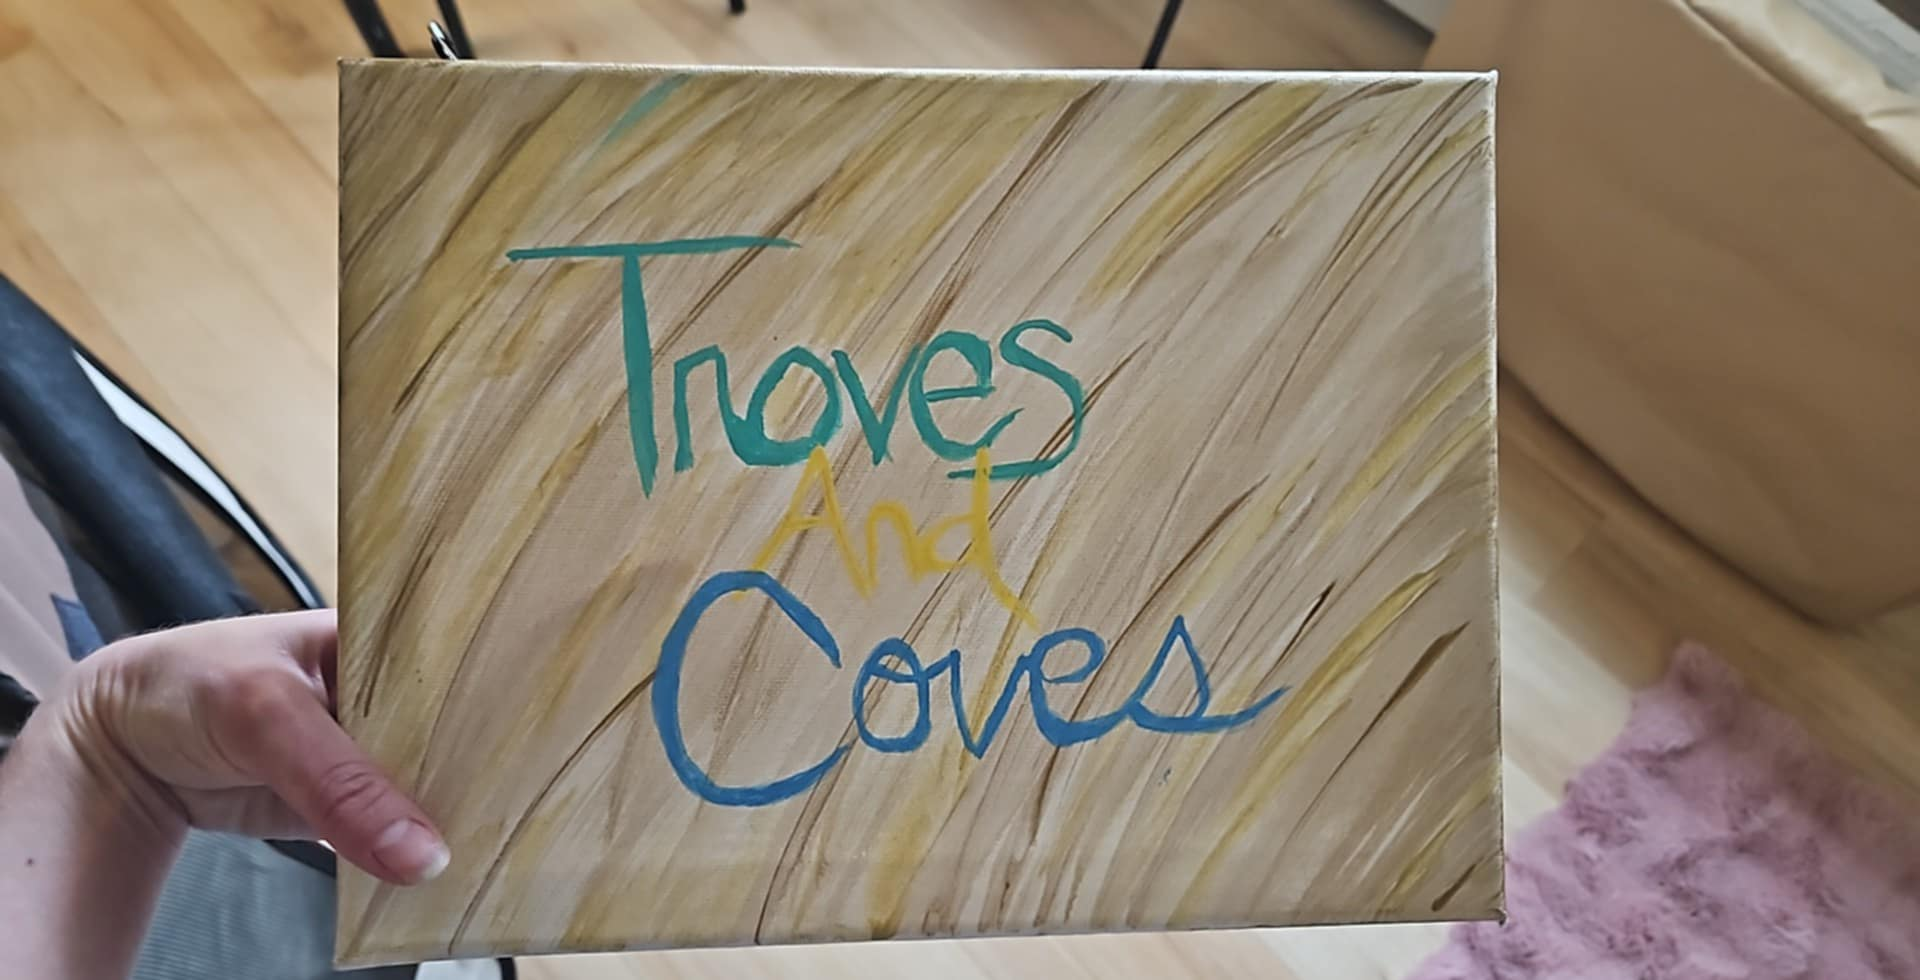 Troves
And
Coves